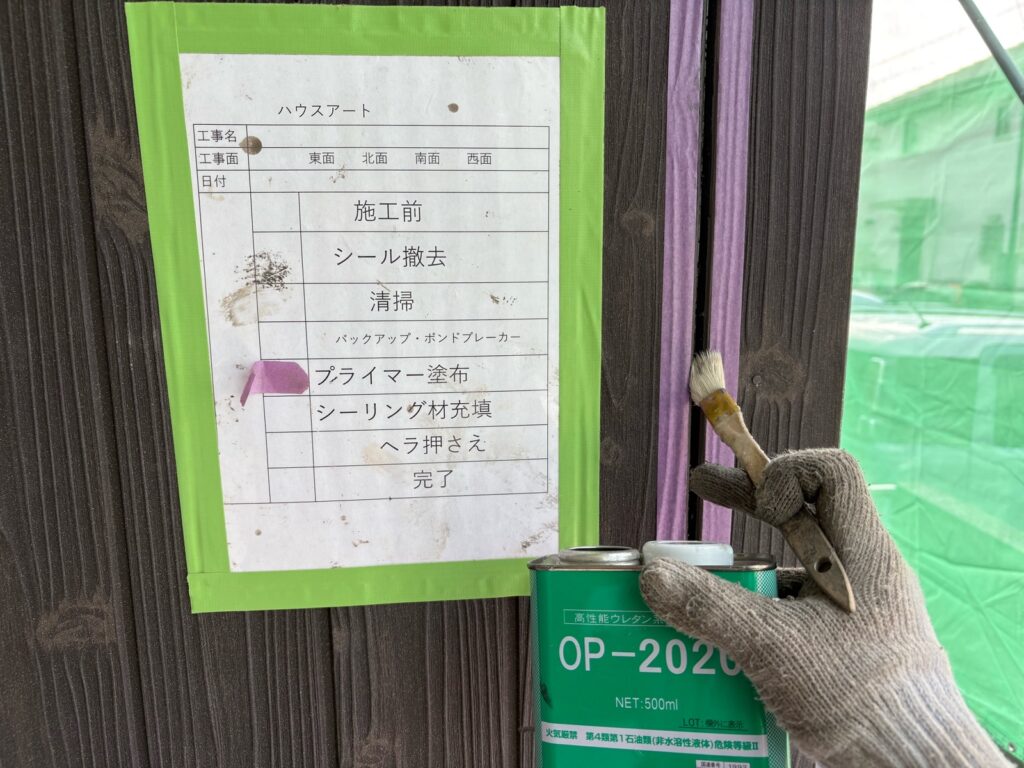 ハウスアート
工事名
工事面 東面 北面 南面 西面
日付
施工前
シール撤去
清掃
バックアップ・ボンドブレーカー
プライマー塗布
シーリング材充填
ヘラ押さえ
完了
高性能ウレタン
OP-202
NET:500ml
LOT:欄外に表示
火気厳禁 第4類第1石油類(非水溶性液体)危険等級II
国連番号 1993